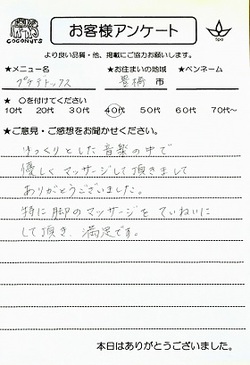 COCONUTS
お客様アンケート
spa
より良い品質・他、掲載にご協力お願いします。
★メニュー名 ★お住まいの地域 ★ペンネーム
プチデトックス 豊橋 市
★ ○を付けてください
10代 20代 30代 40代 50代 60代 70代～
★ご意見・ご感想をお聞かせください。
ゆっくりとした音楽の中で
優しくマッサージして頂きまして
ありがとうございました。
特に脚のマッサージを ていねいに
して頂き、満足です。
本日はありがとうございました。